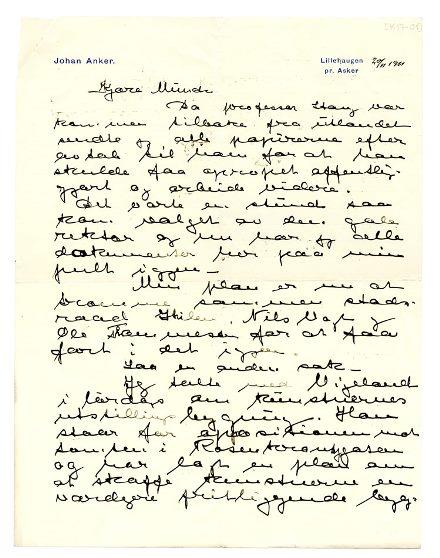 Johan Anker.
Lillehaugen
pr. Asker
29/11 1911
Kjære Munch
Da professor Haug var
kommen tilbake fra utlandet
sendte jeg alle papirerne efter
avtale til ham for at han
skulde faa opropet offentlig-
gjort og arbeide videre.
Det varte en stund saa
kom valget av den gale
rektor og nu har jeg alle
dokumenter her paa min
pult igjen –
Min plan er nu at
tromme sammen stads-
raad Nils og
Ole for at faa
fart i det igjen.
Saa en anden sak –
Jeg talte med Vigeland
i lørdags om kunstnernes
utstillingsbygning. Han
staar for oppositionen mot
tomten i Rosenkrantzgaten
og har lagt en plan om
at skaffe kunstnerne en
værdigere fritliggende byg-